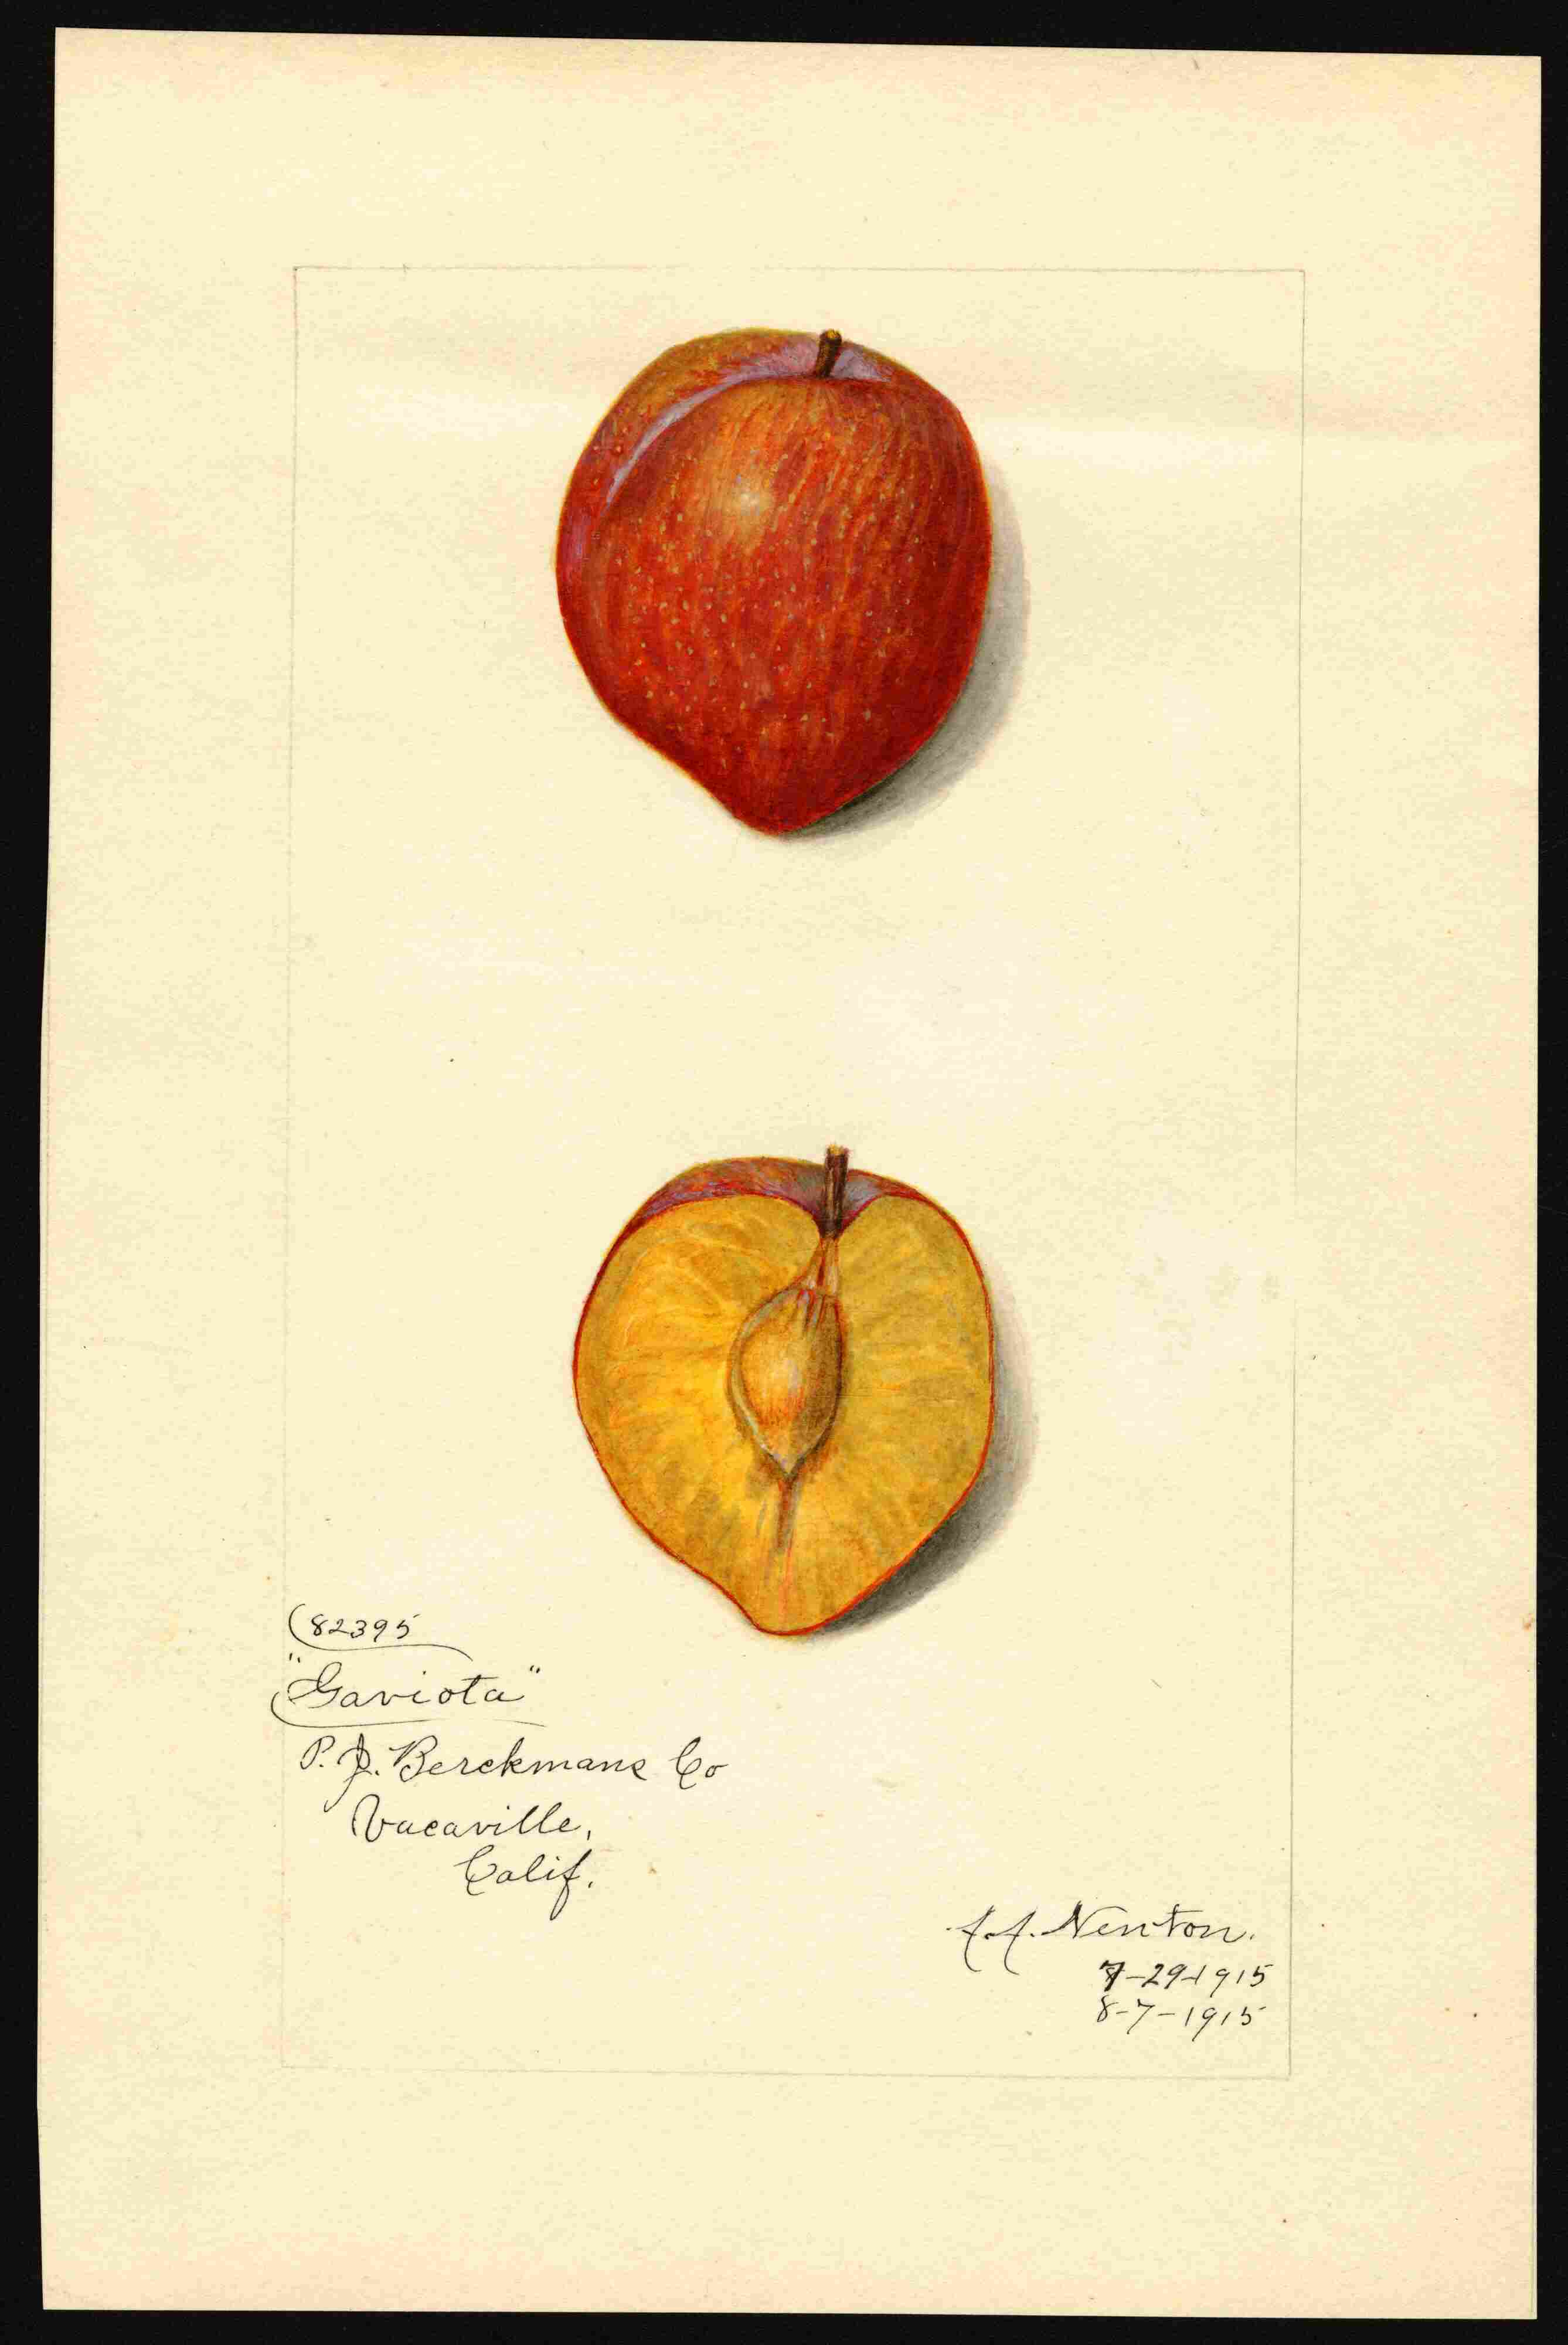 82395
"Gaviota"
P. J. Berckmans Co
Vacaville,
Calif.
A.A. Newton.
7-29-1915
8-7-1915